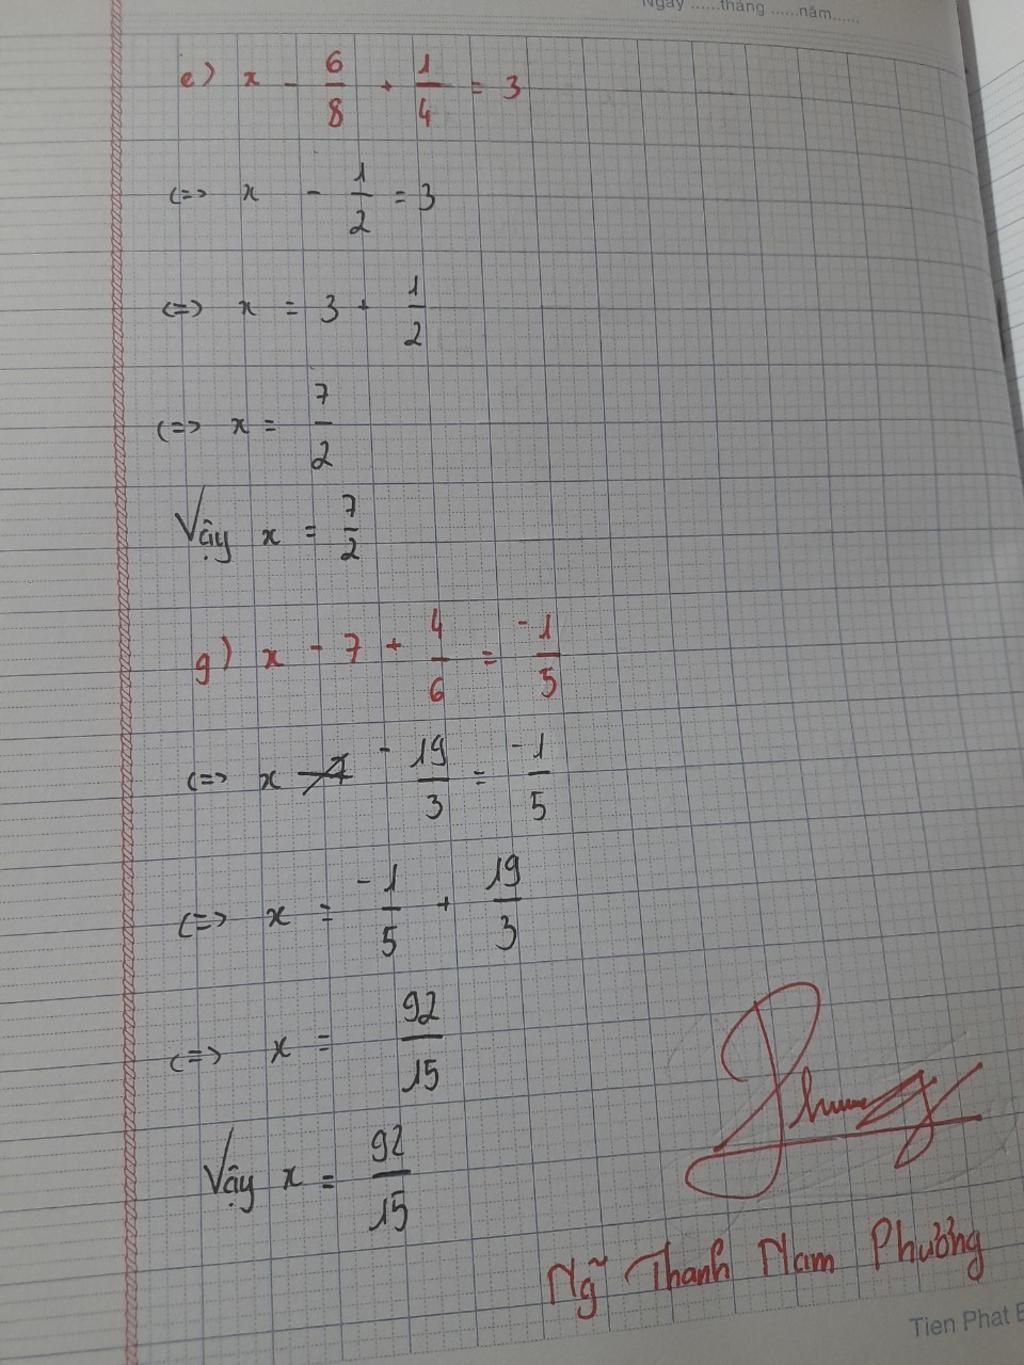 Ngày ......tháng ......năm......
e) x - 6/8 + 1/4 = 3
<=> x - 1/2 = 3
<=> x = 3 + 1/2
<=> x = 7/2
Vậy x = 7/2
g) x - 7 + 4/6 = -1/5
<=> x - 19/3 = -1/5
<=> x = -1/5 + 19/3
<=> x = 92/15
Vậy x = 92/15
Phương
Ngỹ Thanh Nam Phương
Tien Phat